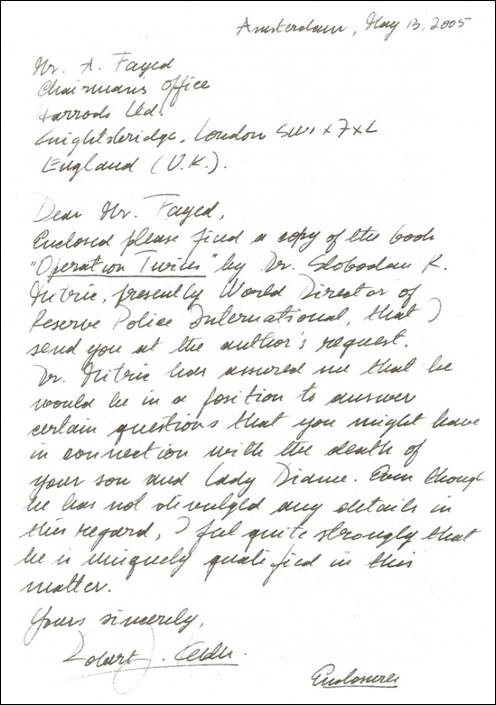 Amsterdam, May 13, 2005
Mr. A. Fayed
Chairmans Office
Harrods Ltd.
Knightsbridge, London SW1X7XL
England (U.K.).
Dear Mr. Fayed,
Enclosed please find a copy of the book
"Operation Twins" by Dr. Slobodan R.
Mitric, presently World Director of
Reserve Police International, that I
send you at the author's request.
Dr. Mitric has assured me that he
would be in a position to answer
certain questions that you might have
in connection with the death of
your son and Lady Diane. Even though
he has not devulged any details in
this regard, I feel quite strongly that
he is uniquely qualified in this
matter.
Yours sincerely,
Robert J. Kelder.
Enclosures